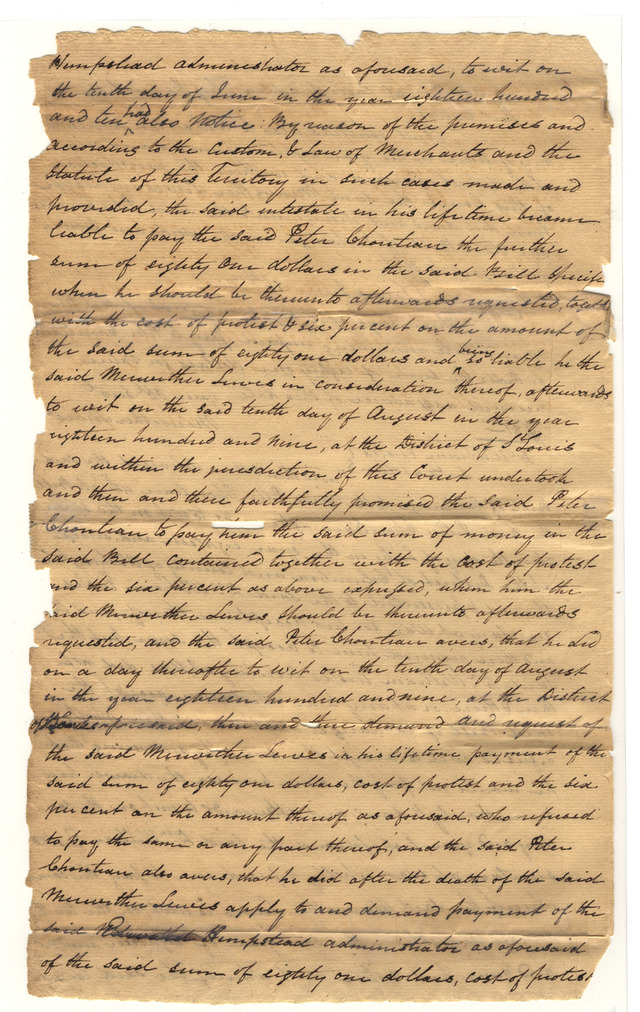 Hempstead administrator as aforesaid, to wit on
the tenth day of June in the year eighteen hundred
and ten had also Notice. By reason of the premises and
according to the Custom, & Law of Merchants and the
Statute of this Territory in such cases made and
provided, the said intestate in his lifetime became
liable to pay the said Peter Choutiau the further
sum of eighty one dollars in the said Bill specifie
when he should be thereunto afterwards requested, togeth
with the cost of protest & six per cent on the amount of
the said sum of eighty one dollars and being so liable he the
said Merwether Lewes in consideration thereof, afterwards
to wit on the said tenth day of August in the year
eighteen hundred and nine, at the District of St Louis
and within the jurisdiction of this Court undertook
and then and there faithfully promised the said Peter
Choutiau to pay him the said sum of money in the
said Bill contained together with the cost of protest
and the six percent as above expressed, when him the
said Merwether Lewes should be thereunto afterwards
requested, and the said Peter Choutiau avers, that he did
on a day thereafter to wit on the tenth day of August
in the year eighteen hundred and nine, at the District
of St Louis aforesaid, then and there demand and request of
the said Merwether Lewes in his lifetime payment of the
said sum of eighty one dollars, cost of protest and the six
per cent on the amount thereof as aforesaid, who refused
to pay the same or any part thereof, and the said Peter
Choutiau also avers, that he did after the death of the said
Merwether Lewes apply to and demand payment of the
said Edward Hempstead administrator as aforesaid
of the said sum of eighty one dollars, cost of protest